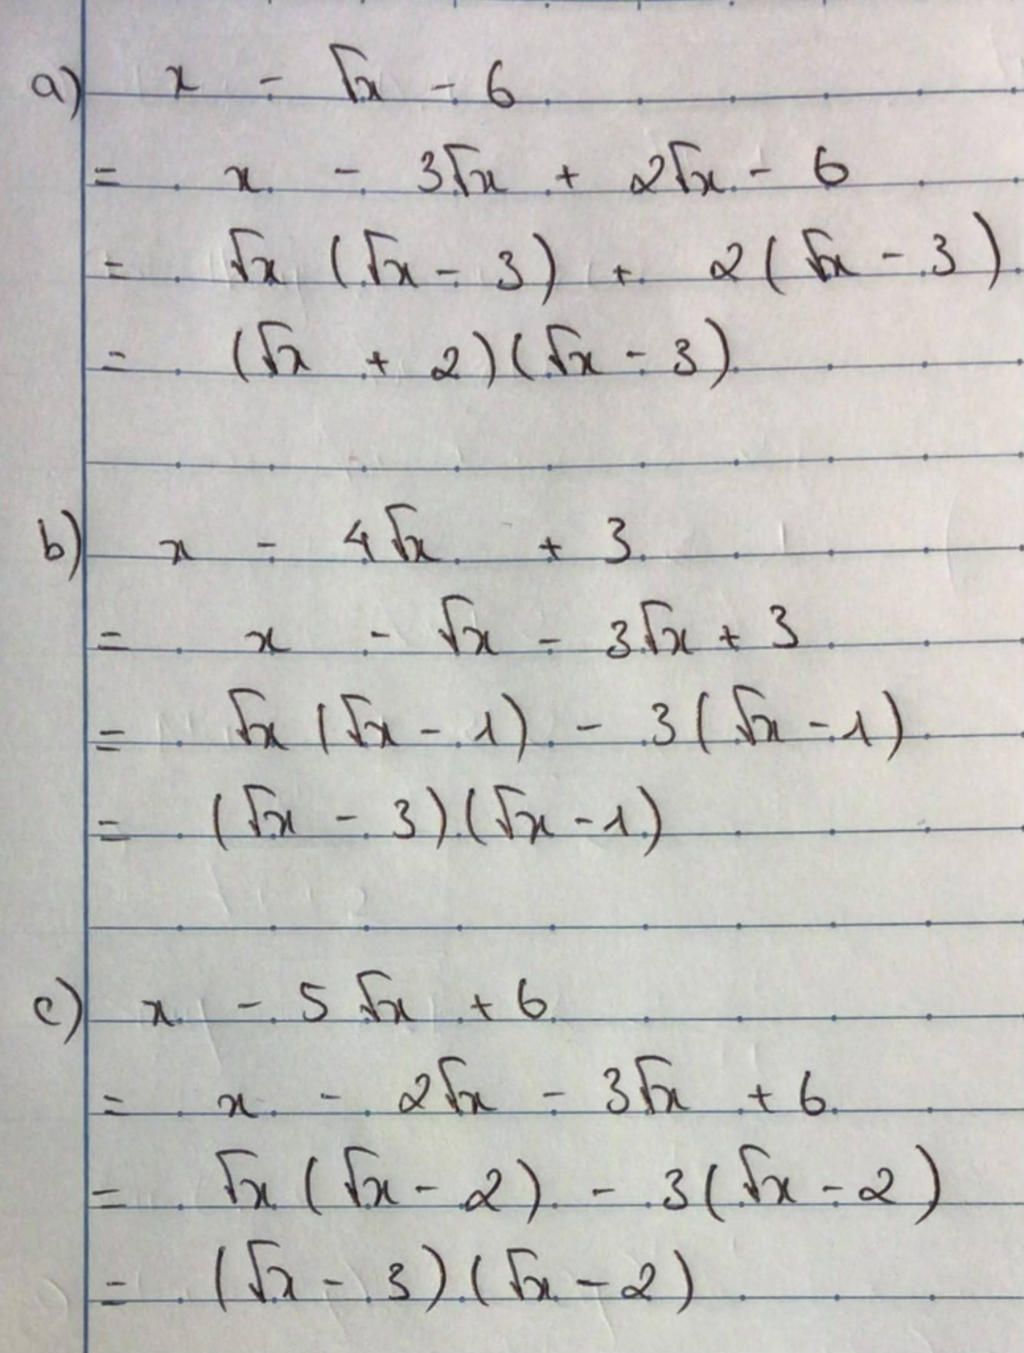 a) x - √x - 6
= x - 3√x + 2√x - 6
= √x (√x - 3) + 2(√x - 3)
= (√x + 2)(√x - 3)
b) x - 4√x + 3
= x - √x - 3√x + 3
= √x (√x - 1) - 3(√x - 1)
= (√x - 3)(√x - 1)
c) x - 5√x + 6
= x - 2√x - 3√x + 6
= √x (√x - 2) - 3(√x - 2)
= (√x - 3)(√x - 2)